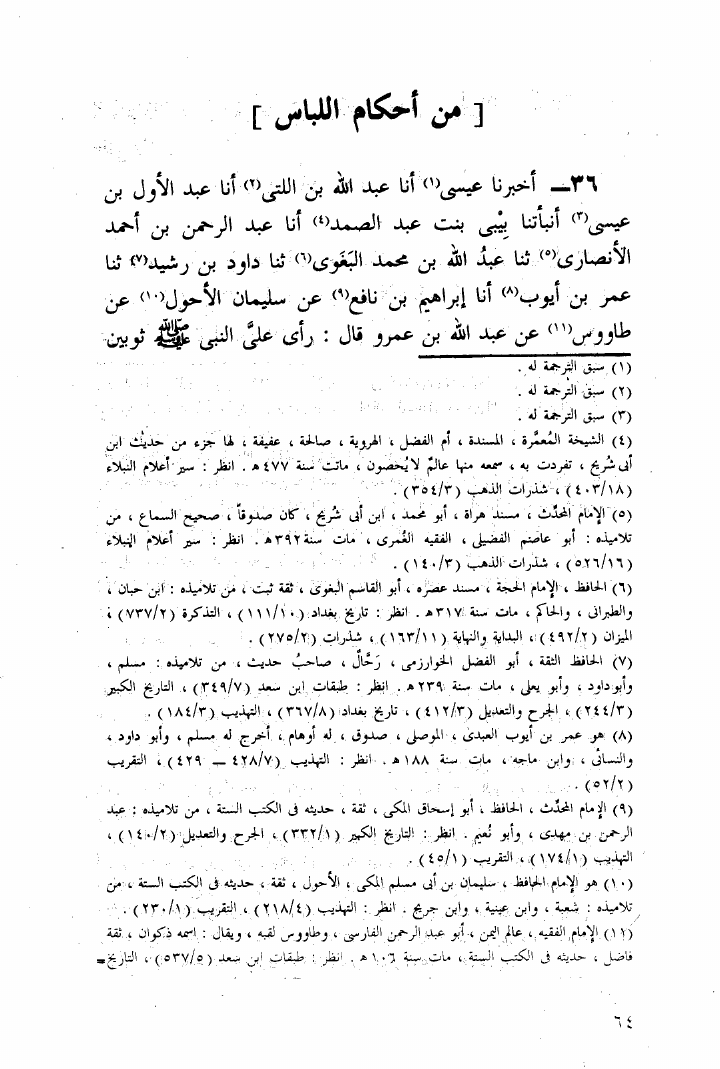 [ من أحكام اللباس ]
٣٦ــ أخبرنا عيسى(١) أنا عبد الله بن اللتى(٢) أنا عبد الأول بن
عيسى(٣) أنبأتنا بِيْبى بنت عبد الصمد(٤) أنا عبد الرحمن بن أحمد
الأنصارى(٥) ثنا عبدُ الله بن محمد البَغَوى(٦) ثنا داود بن رشيد(٧) ثنا
عمر بن أيوب(٨) أنا إبراهيم بن نافع(٩) عن سليمان الأحول(١٠) عن
طاووس(١١) عن عبد الله بن عمرو قال : رأى علىَّ النبى ﷺ ثوبين
(١) سبق الترجمة له .
(٢) سبق الترجمة له .
(٣) سبق الترجمة له .
(٤) الشيخة المُعمَّرة ، المسندة ، أم الفضل ، الهروية ، صالحة ، عفيفة ، لها جزء من حديث ابن
أبى شُريح ، تفردت به ، سمعه منها عالمٌ لا يُحصَون ، ماتت سنة ٤٧٧ هـ . انظر : سير أعلام النبلاء
(٤٠٣/١٨) ، شذرات الذهب (٣٥٤/٣) .
(٥) الإمام المحدِّث ، مسند هراة ، أبو محمد ، ابن أبى شُريح ، كان صدوقاً ، صحيح السماع ، من
تلاميذه : أبو عاصم الفضيلى ، الفقيه العُمرى ، مات سنة ٣٩٢ هـ . انظر : سير أعلام النبلاء
(٥٢٦/١٦) ، شذرات الذهب (١٤٠/٣) .
(٦) الحافظ ، الإمام الحجة ، مسند عصره ، أبو القاسم البغوى ، ثقة ثبت ، من تلاميذه : ابن حبان ،
والطبرانى ، والحاكم ، مات سنة ٣١٧ هـ . انظر : تاريخ بغداد (١١١/١٠) ، التذكرة (٧٣٧/٢) ،
الميزان (٤٩٢/٢) ، البداية والنهاية (١٦٣/١١) ، شذرات (٢٧٥/٢) .
(٧) الحافظ الثقة ، أبو الفضل الخوارزمى ، رَحَّالٌ ، صاحبُ حديث ، من تلاميذه : مسلم ،
وأبو داود ، وأبو يعلى ، مات سنة ٢٣٩ هـ . انظر : طبقات ابن سعد (٣٤٩/٧) ، التاريخ الكبير
(٢٤٤/٣) ، الجرح والتعديل (٤١٢/٣) ، تاريخ بغداد (٣٦٧/٨) ، التهذيب (١٨٤/٣) .
(٨) هو عمر بن أيوب العبدى ، الموصلى ، صدوق ، له أوهام ، أخرج له مسلم ، وأبو داود ،
والنسائى ، وابن ماجه ، مات سنة ١٨٨ هـ . انظر : التهذيب (٤٢٨/٧ ــ ٤٢٩) ، التقريب
(٥٢/٢) .
(٩) الإمام المحدِّث ، الحافظ ، أبو إسحاق المكى ، ثقة ، حديثه فى الكتب الستة ، من تلاميذه : عبد
الرحمن بن مهدى ، وأبو نُعيم . انظر : التاريخ الكبير (٣٣٢/١) ، الجرح والتعديل (١٤٠/٢) ،
التهذيب (١٧٤/١) ، التقريب (٤٥/١) .
(١٠) هو الإمام الحافظ ، سليمان بن أبى مسلم المكى ، الأحول ، ثقة ، حديثه فى الكتب الستة ، من
تلاميذه : شعبة ، وابن عيينة ، وابن جريج . انظر : التهذيب (٢١٨/٤) ، التقريب (٢٣٠/١) .
(١١) الإمام الفقيه ، عالم اليمن ، أبو عبد الرحمن الفارسى ، وطاووس لقبه ، ويقال : اسمه ذكوان ، ثقة
فاضل ، حديثه فى الكتب الستة ، مات سنة ١٠٦ هـ . انظر : طبقات ابن سعد (٥٣٧/٥) ، التاريخ=
٦٤